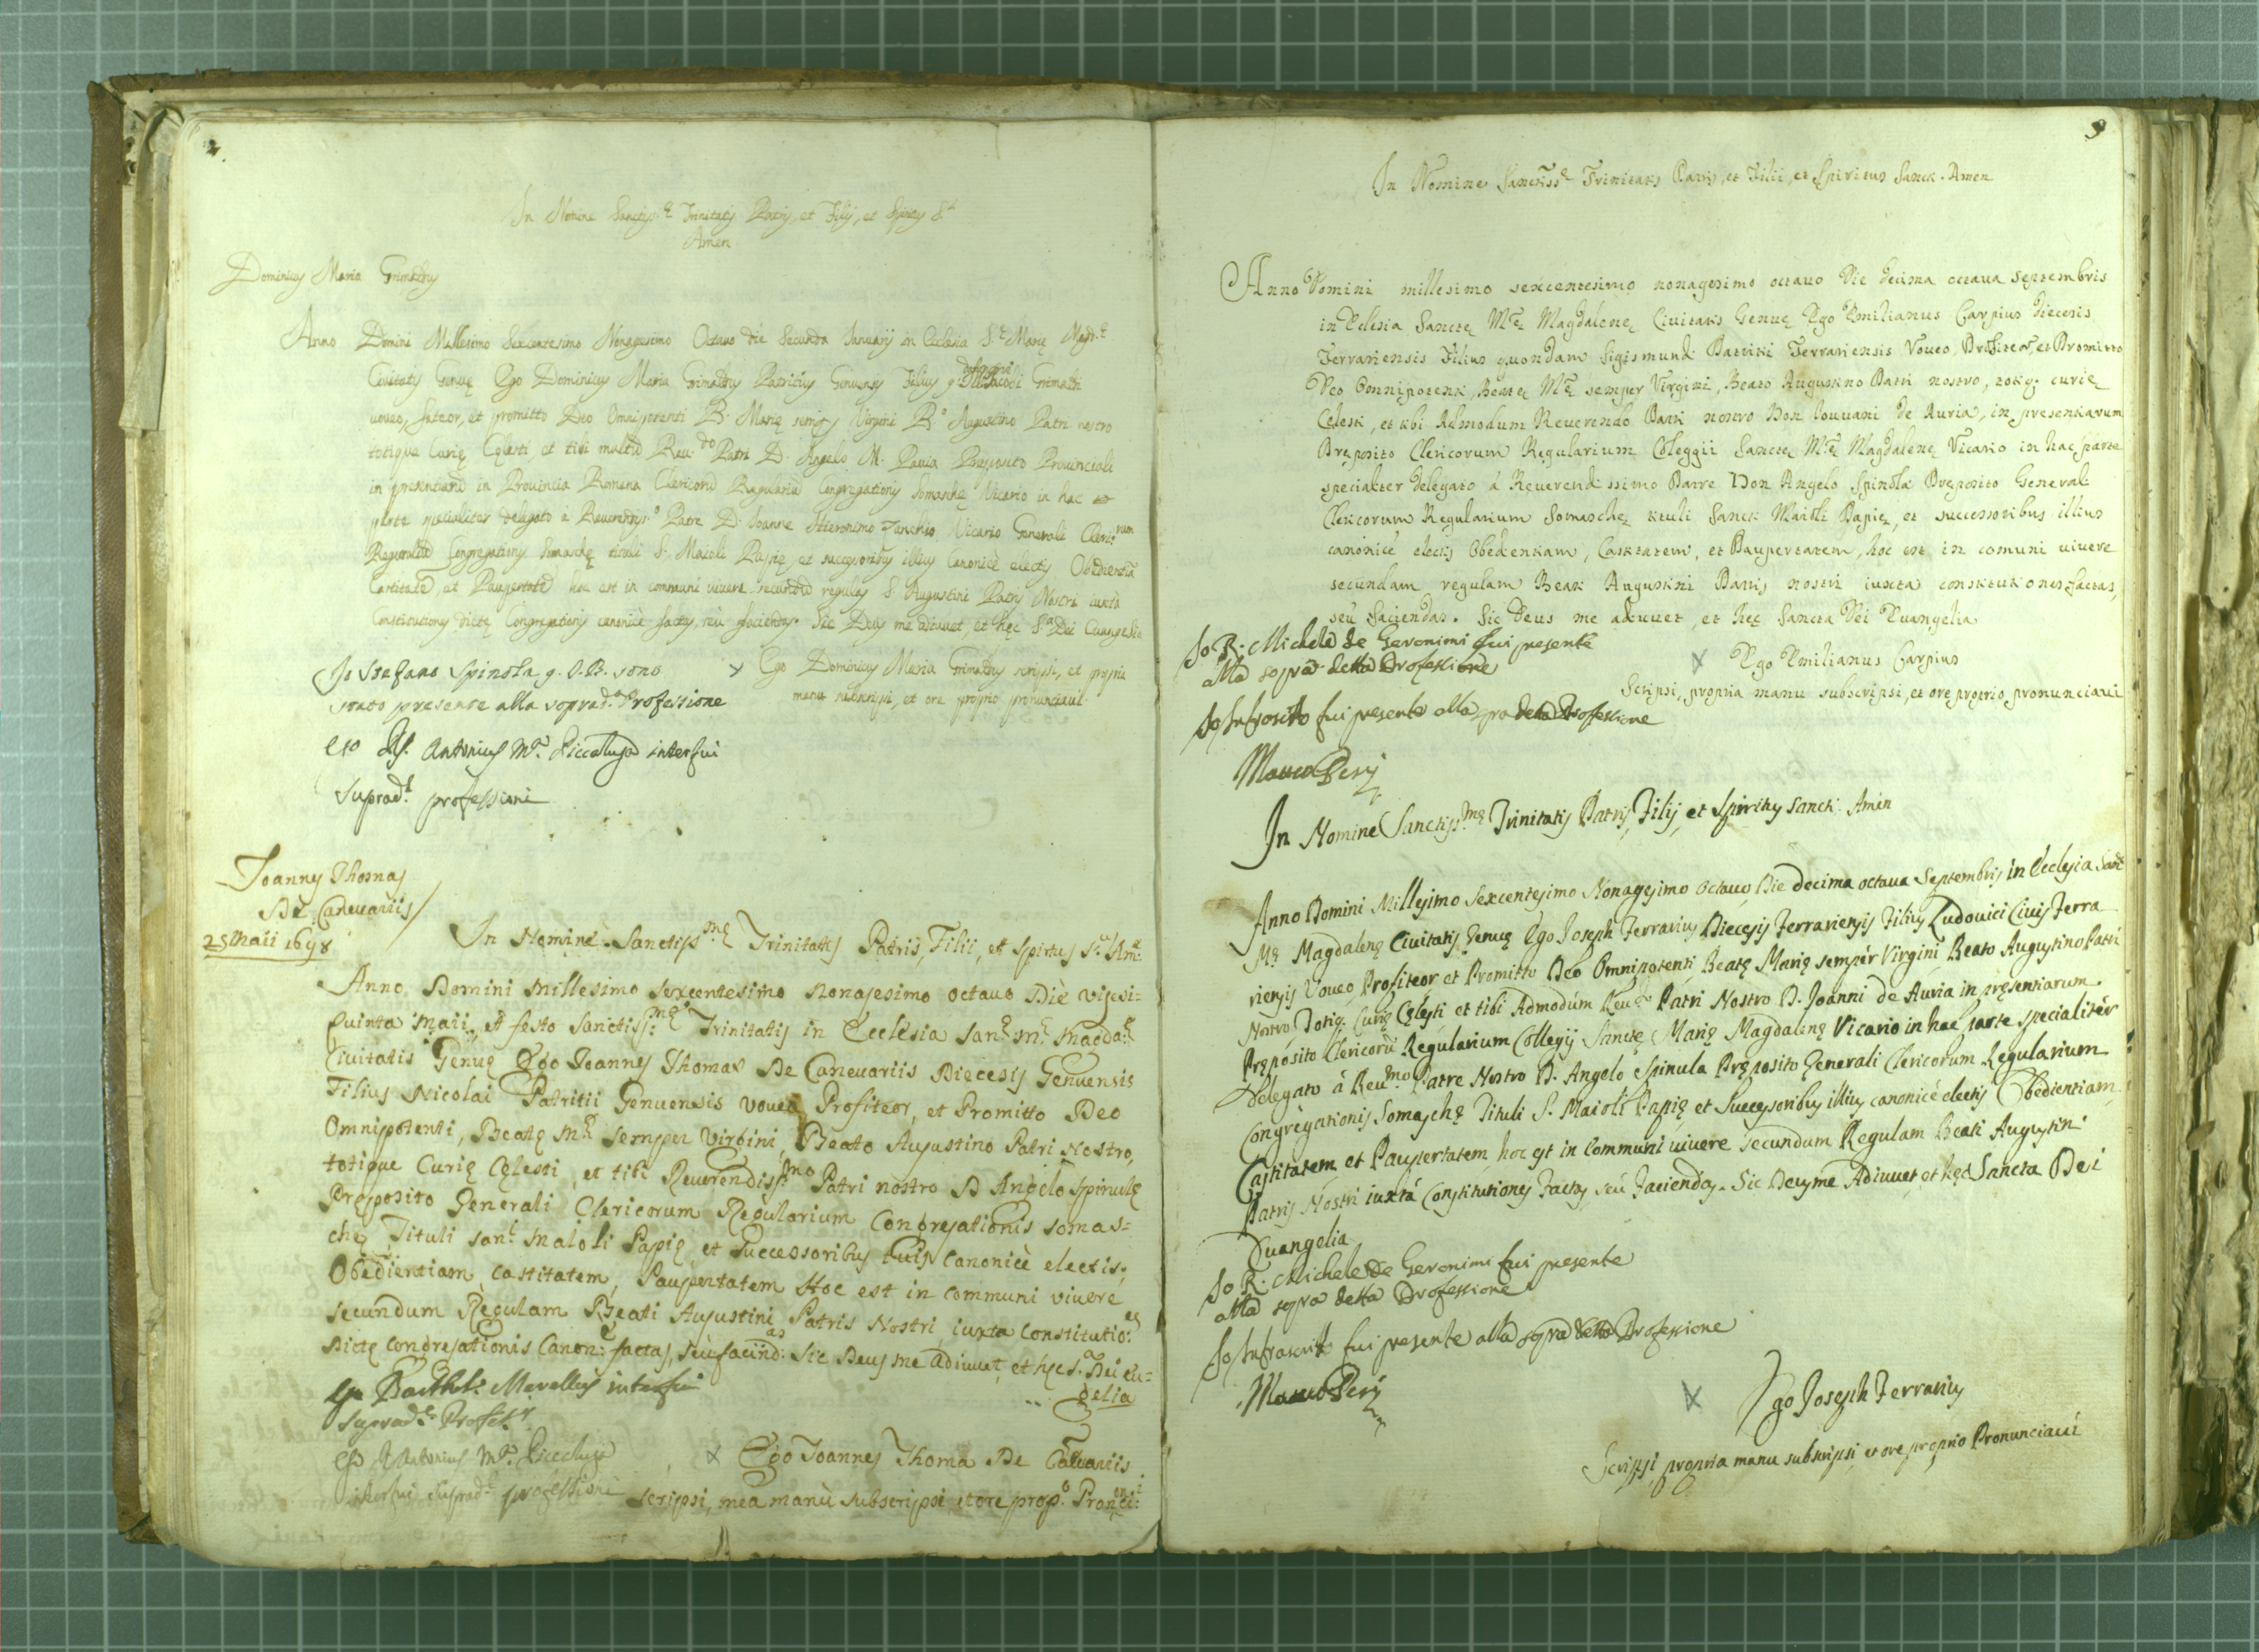 2.
In Nomine Sanctiss.ę Trinitatis Patris, et Filij, et Spiritus S.ti
Amen
Dominicus Maria Grimaldus
Anno Domini Millesimo Sexcentesimo Nonagesimo Octavo die Secunda Januarij in Ecclesia S.ę Marię Magd.ę
Civitatis Genuę Ego Dominicus Maria Grimaldus Patricius Genuensis Filius q. Grimaldi
voveo, fateor, et promitto Deo Omnipotenti B. Marię semper Virgini B.o Augustino Patri nostro
totique Curię Cęlesti, et tibi multum Reu.do Patri D. Angelo M. Pauia Preposito Provinciali
in presentiarum in Provincia Romana Clericorum Regularium Congregationis Somaschę Vicario in hac
parte specialiter delegato à Reverendiss.o Patre D. Joanne Hieronimo Zanchio Vicario Generali Cleric.rum
Regularium Congregationis Somaschę tituli S. Maioli Papię, et successoribus illius Canonicè electis Obedientiam
Castitatem, et Paupertatem hoc est in communi vivere secundum regulas S. Augustini Patris Nostri iuxta
Constitutiones dictę Congregationis canonicè factas, seu faciendas. Sic Deus me adiuvet, et hęc S.a Dei Euangelia
Io Stefano Spinola q. G. B. sono
stato presente alla soprad.a Professione
x Ego Dominicus Maria Grimaldus scripsi, et propria
manu subscripsi, et ore proprio pronunciavi
Ego Antonius M.a Piccaluga interfui
Suprad.ę professioni
Joannes Thomas
De Caneuariis
25 Maii 1698
In Nomine Sanctiss.mę Trinitatis Patris, Filii, et Spiritus S.ti Am:
Anno Domini Millesimo sexcentesimo Nonagesimo octavo Diè vigesi=
quinta Maii, et festo Sanctiss:mę Trinitatis in Ecclesia san.ę m.ę Magda.ę
Civitatis Genuę Ego Joannes Thomas De Caneuariis Diecesis Genuensis
Filius Nicolai Patritii Genuensis voveo Profiteor, et Promitto Deo
Omnipotenti, Beatę M.ę semper Virgini, Beato Augustino Patri Nostro,
totique Curię Cęlesti, et tibi Reverendiss:mo Patri nostro D Angelo Spinulę
Pręposito Generali Clericorum Regularium Congregationis somas=
chę Tituli san.ti Maioli Papię, et successoribus tuis canonicè electis,
Obedientiam, castitatem, Paupertatem Hoc est in communi vivere
secundum Regulam Beati Augustini Patris Nostri iuxta constitutio:es
Dictę congregationis Canon.è factas, seù facind:as sic Deus me adiuvet, et hęc s.a Dei eu=
gelia
Ego Barthol: Merellus interfui
suprad.ę Profes.i
Ego Antonius M.a Piccaluga
interfui suprad.ę professioni
x Ego Joannes Thoma De Caneuariis
scripsi, mea manù subscripsi et ore prop.o Pronci:
3
In Nomine Sanctissę Trinitatis Patris, et Filii, et Spiritus Sancti. Amen
Anno Domini millesimo sexcentesimo nonagesimo octavo Die decima octava septembris
in Eclesia Sanctę M.ę Magdalenę Civitatis Genuę Ego Emilianus Carpius diecesis
Ferrariensis Filius quondam Sigismundi Patritii Ferrariensis Voveo, Profiteor, et Promitto
Deo Omnipotenti, Beatę M.ę semper Virgini, Beato Augustino Patri nostro, totiq; curię
Celesti, et tibi Admodum Reverendo Patri nostro Don Iouuani de Auria, in presentiarum
Pręposito Clericorum Regularium Collegii Sanctę M.ę Magdalenę Vicario in hac parte
specialiter delegato à Reverendissimo Patre Don Angelo Spinola Pręposito Generali
Clericorum Regularium Somaschę tituli Sancti Maioli Papię, et successoribus illius
canonicè electis Obedientiam, Castitatem, et Paupertatem, hoc est in comuni vivere
secundam regulam Beati Augustini Patris nostri iuxta constitutiones factas,
seù faciendas. Sic Deus me adiuvet, et hęc Sancta Dei Euangelia
Io R. Michele de Geronimi fui presente
alla sopra detta Professione
x Ego Emilianus Carpius
Scripsi, propria manu subscripsi, et ore proprio pronunciavi
Io Infrascritto fui presente alla sopra detta Professione
Marco Peri
In Nomine Sanctiss.mę Trinitatis Patris, Filij, et Spiritus Sancti. Amen
Anno Domini Millesimo Sexcentesimo Nonagesimo Octavo Die decima octava Septembris in Ecclesia Sanctę
Mę Magdalenę Civitatis Genuę Ego Joseph Ferrarius Diecesis Ferrariensis Filius Ludovici Civis Ferra
riensis Voveo, Profiteor et Promitto Deo Omnipotenti Beatę Marię semper Virgini, Beato Augustino Patri
Nostro, Totiq; Curię Cęlesti et tibi Admodum Reu.do Patri Nostro D. Joanni de Auria in pręsentiarum
Pręposito Clericorum Regularium Collegij Sanctę Marię Magdalenę Vicario in hac parte specialiter
Delegato à Reu.mo Patre Nostro D. Angelo Spinula Pręposito Generali Clericorum Regularium
Congregationis Somaschę Tituli S. Maioli Papię et Successoribus illius canonicè electis Obedientiam
Castitatem et Paupertatem, hoc est in Communi vivere secundum Regulam Beati Augustini
Patris Nostri iuxtà Constitutiones Factas, seù Faciendas. Sic Deus me Adiuvet, et hęc Sancta Dei
Euangelia
Io R. Michele de Geronimi fui presente
alla sopra detta Professione
Io Infrascritto fui presente alla sopra detta Professione
Marco Peri
x Ego Joseph Ferrarius
Scripsi, propria manu subscripsi, et ore proprio Pronunciavi